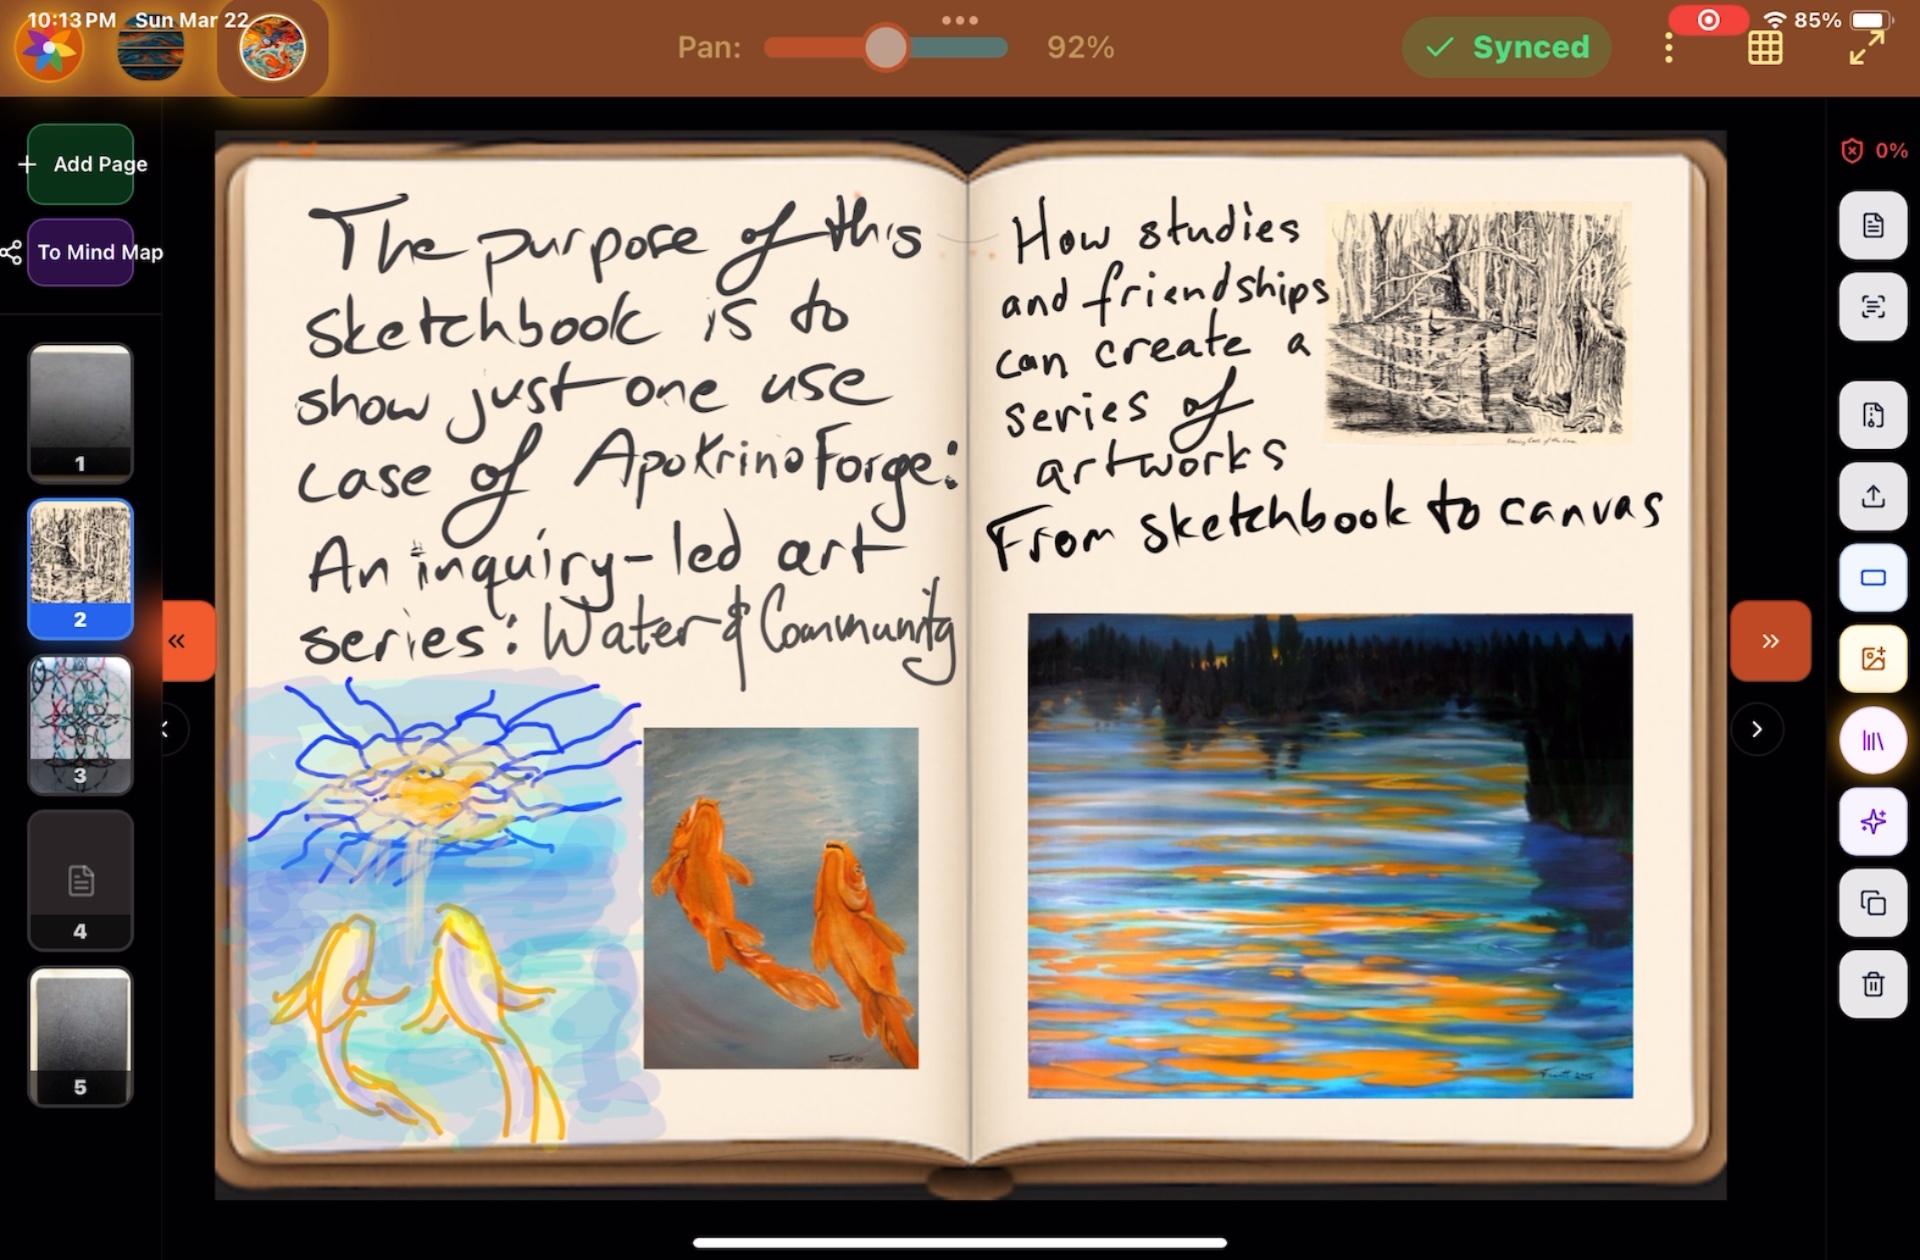 10:13 PM Sun Mar 22
Pan:
92%
Synced
85%
Add Page
To Mind Map
0%
1
2
3
4
5
The purpose of this
sketchbook is to
show just one use
case of ApoKrinoForge:
An inquiry-led art
series: Water & Community
How studies
and friendships
can create a
series of
artworks
From sketchbook to canvas